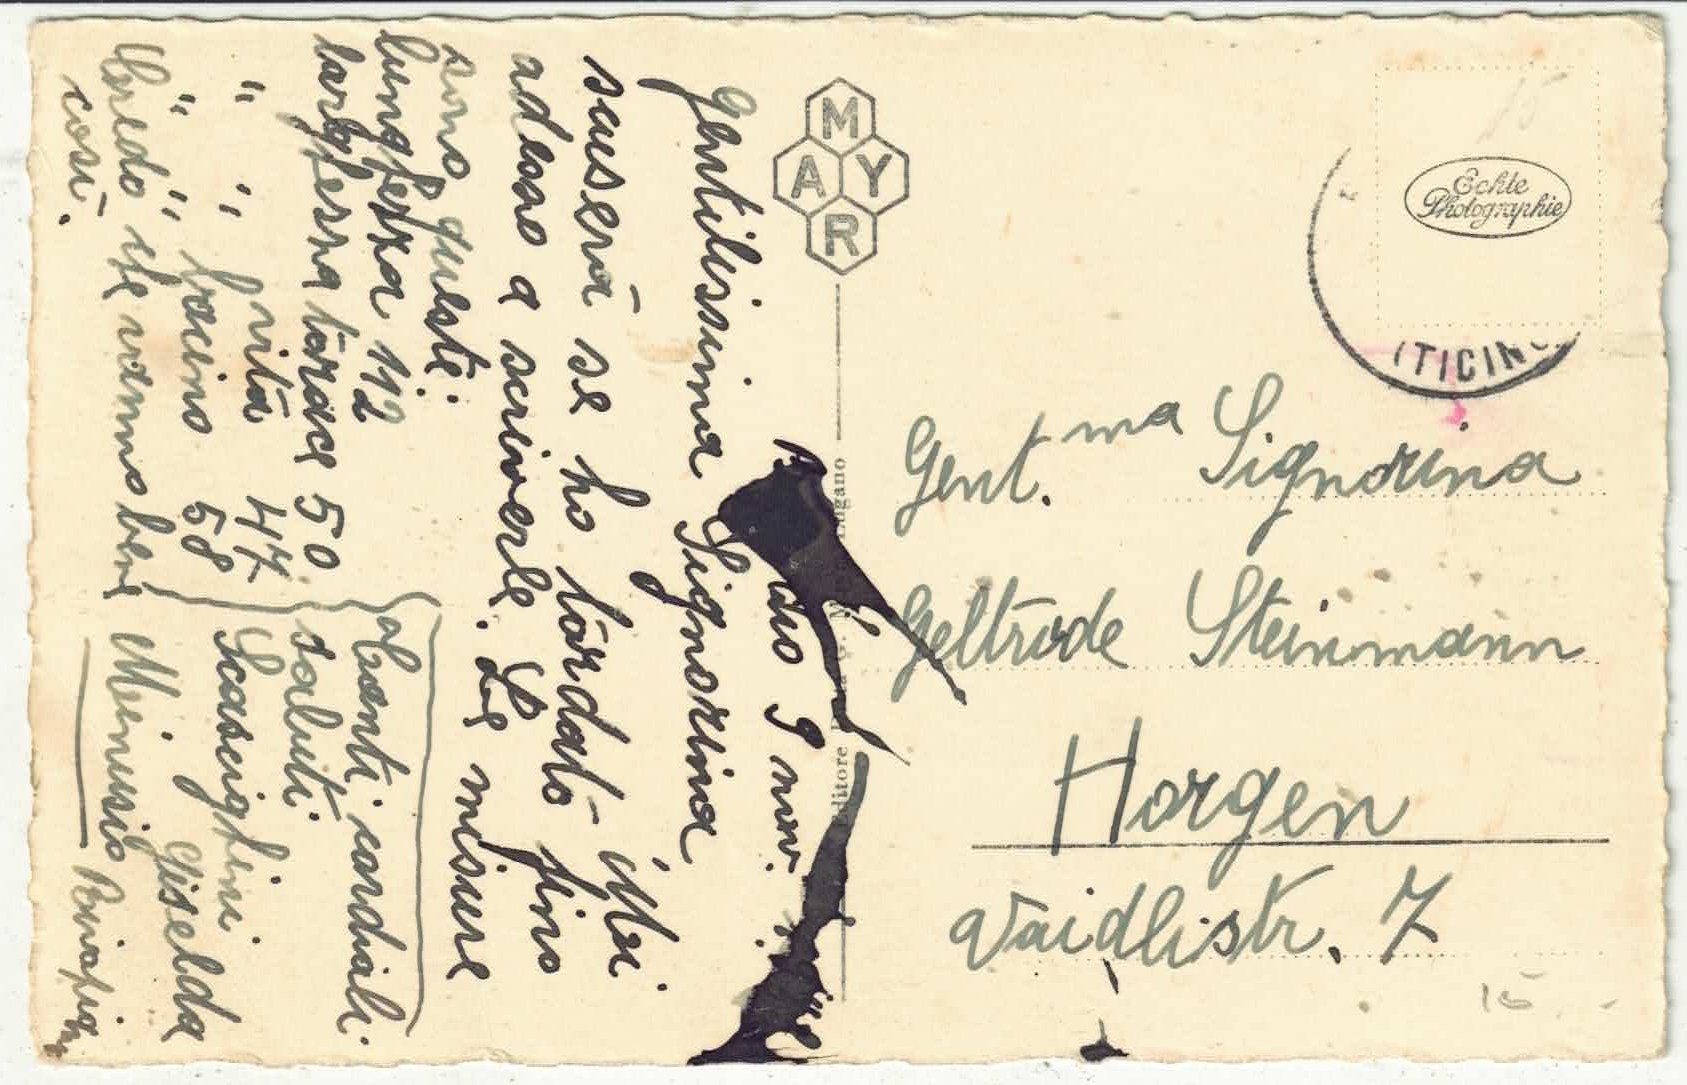 9 nov.
Gentilissima Signorina
scuserà se ho tardato fino
adesso a scriverle. Le misure
sono queste:
lunghezza 112
larghezza torace 50
" " vita 47
" " bacino 58
Credo che vanno bene
così.
Tanti cordiali
saluti.
Scascighini
Giselda
Minusio
MAYR
Editore
Echte
Photographie
(TICINO
Gent.ma Signorina
Geltrude Steinmann
Horgen
Vaidlistr. 7
15